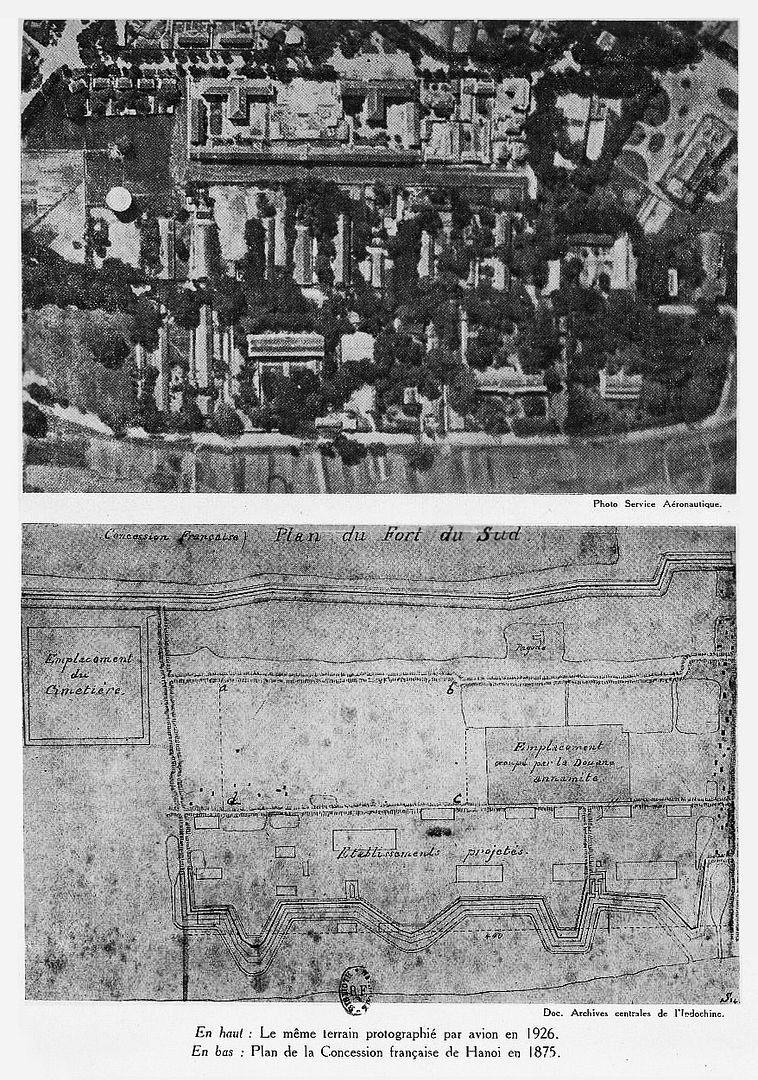 Photo Service Aéronautique.
Concession française) Plan du Fort du Sud.
Emplacement
du
Cimetière.
Pagode
a
b
Emplacement
occupé par la Douane
annamite
d
c
Etablissements projetés.
400
Doc. Archives centrales de l'Indochine.
En haut : Le même terrain protographié par avion en 1926.
En bas : Plan de la Concession française de Hanoi en 1875.